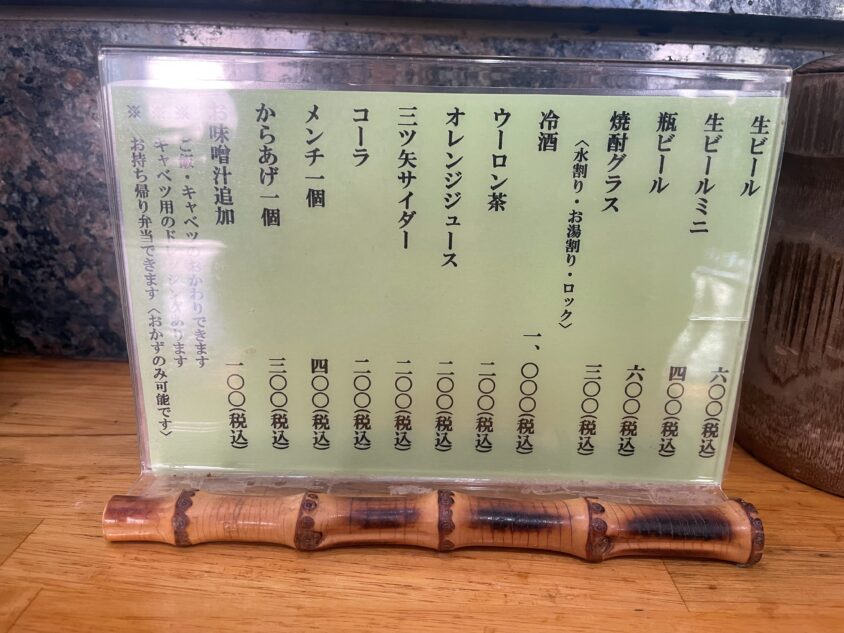 生ビール 六〇〇(税込)
生ビールミニ 四〇〇(税込)
瓶ビール 六〇〇(税込)
焼酎グラス 三〇〇(税込)
〈水割り・お湯割り・ロック〉
冷酒 一、〇〇〇(税込)
ウーロン茶 二〇〇(税込)
オレンジジュース 二〇〇(税込)
三ツ矢サイダー 二〇〇(税込)
コーラ 二〇〇(税込)
メンチ一個 四〇〇(税込)
からあげ一個 三〇〇(税込)
お味噌汁追加 一〇〇(税込)
※ ご飯・キャベツのおかわりできます
※ キャベツ用のドレッシングあります
※ お持ち帰り弁当できます〈おかずのみ可能です〉